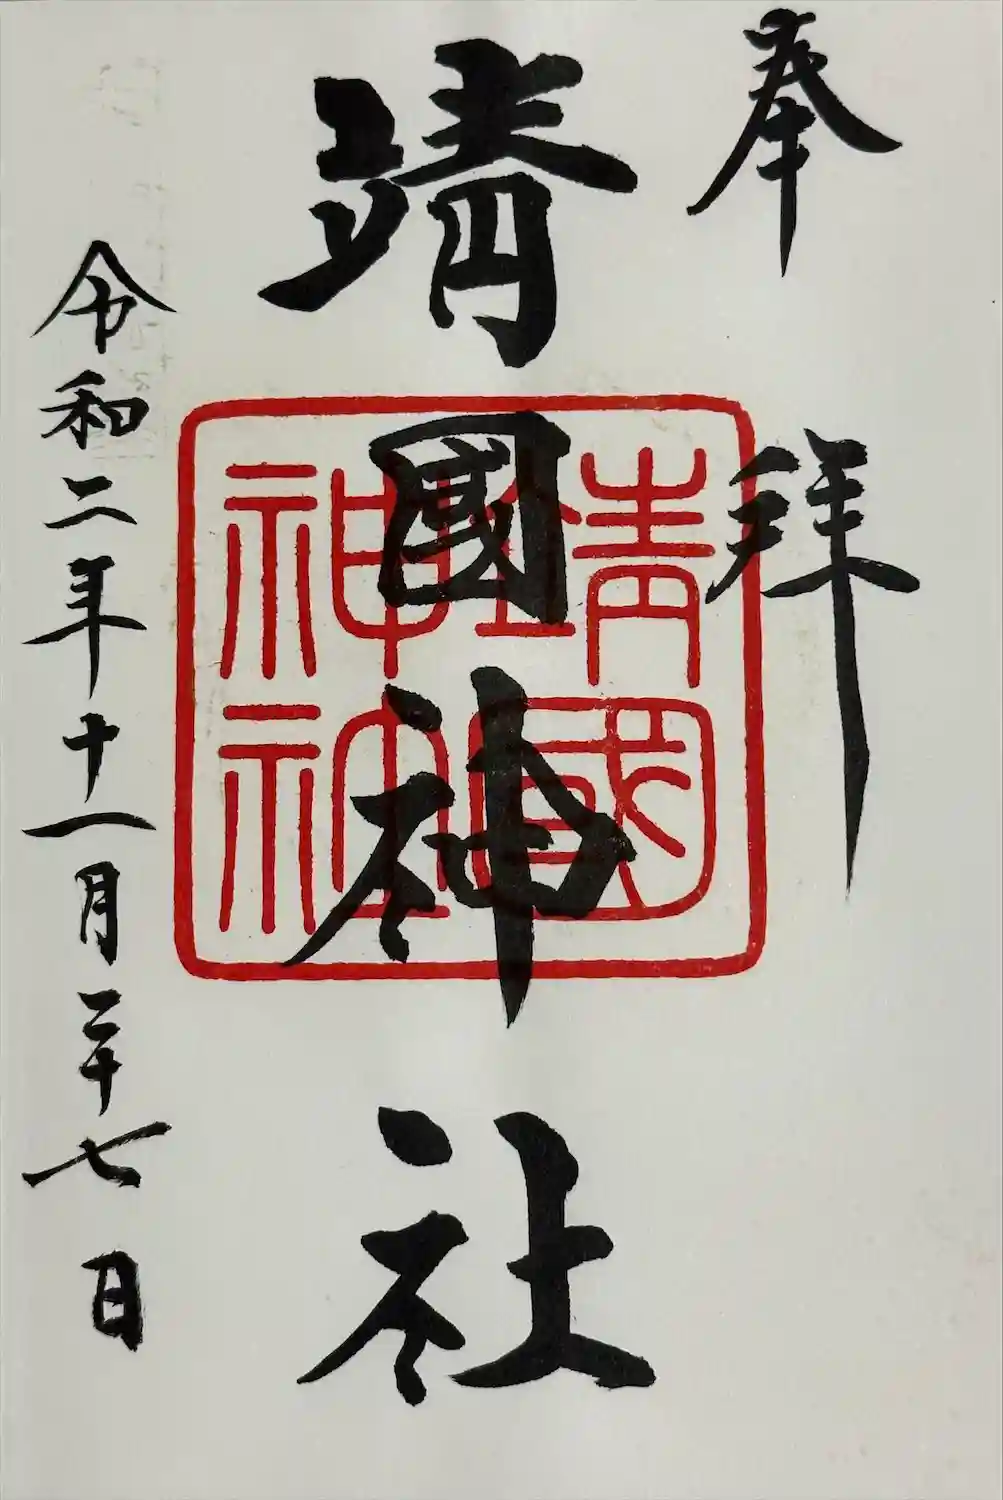 奉拝
靖國神社
靖國
神社
令和二年十一月二十七日